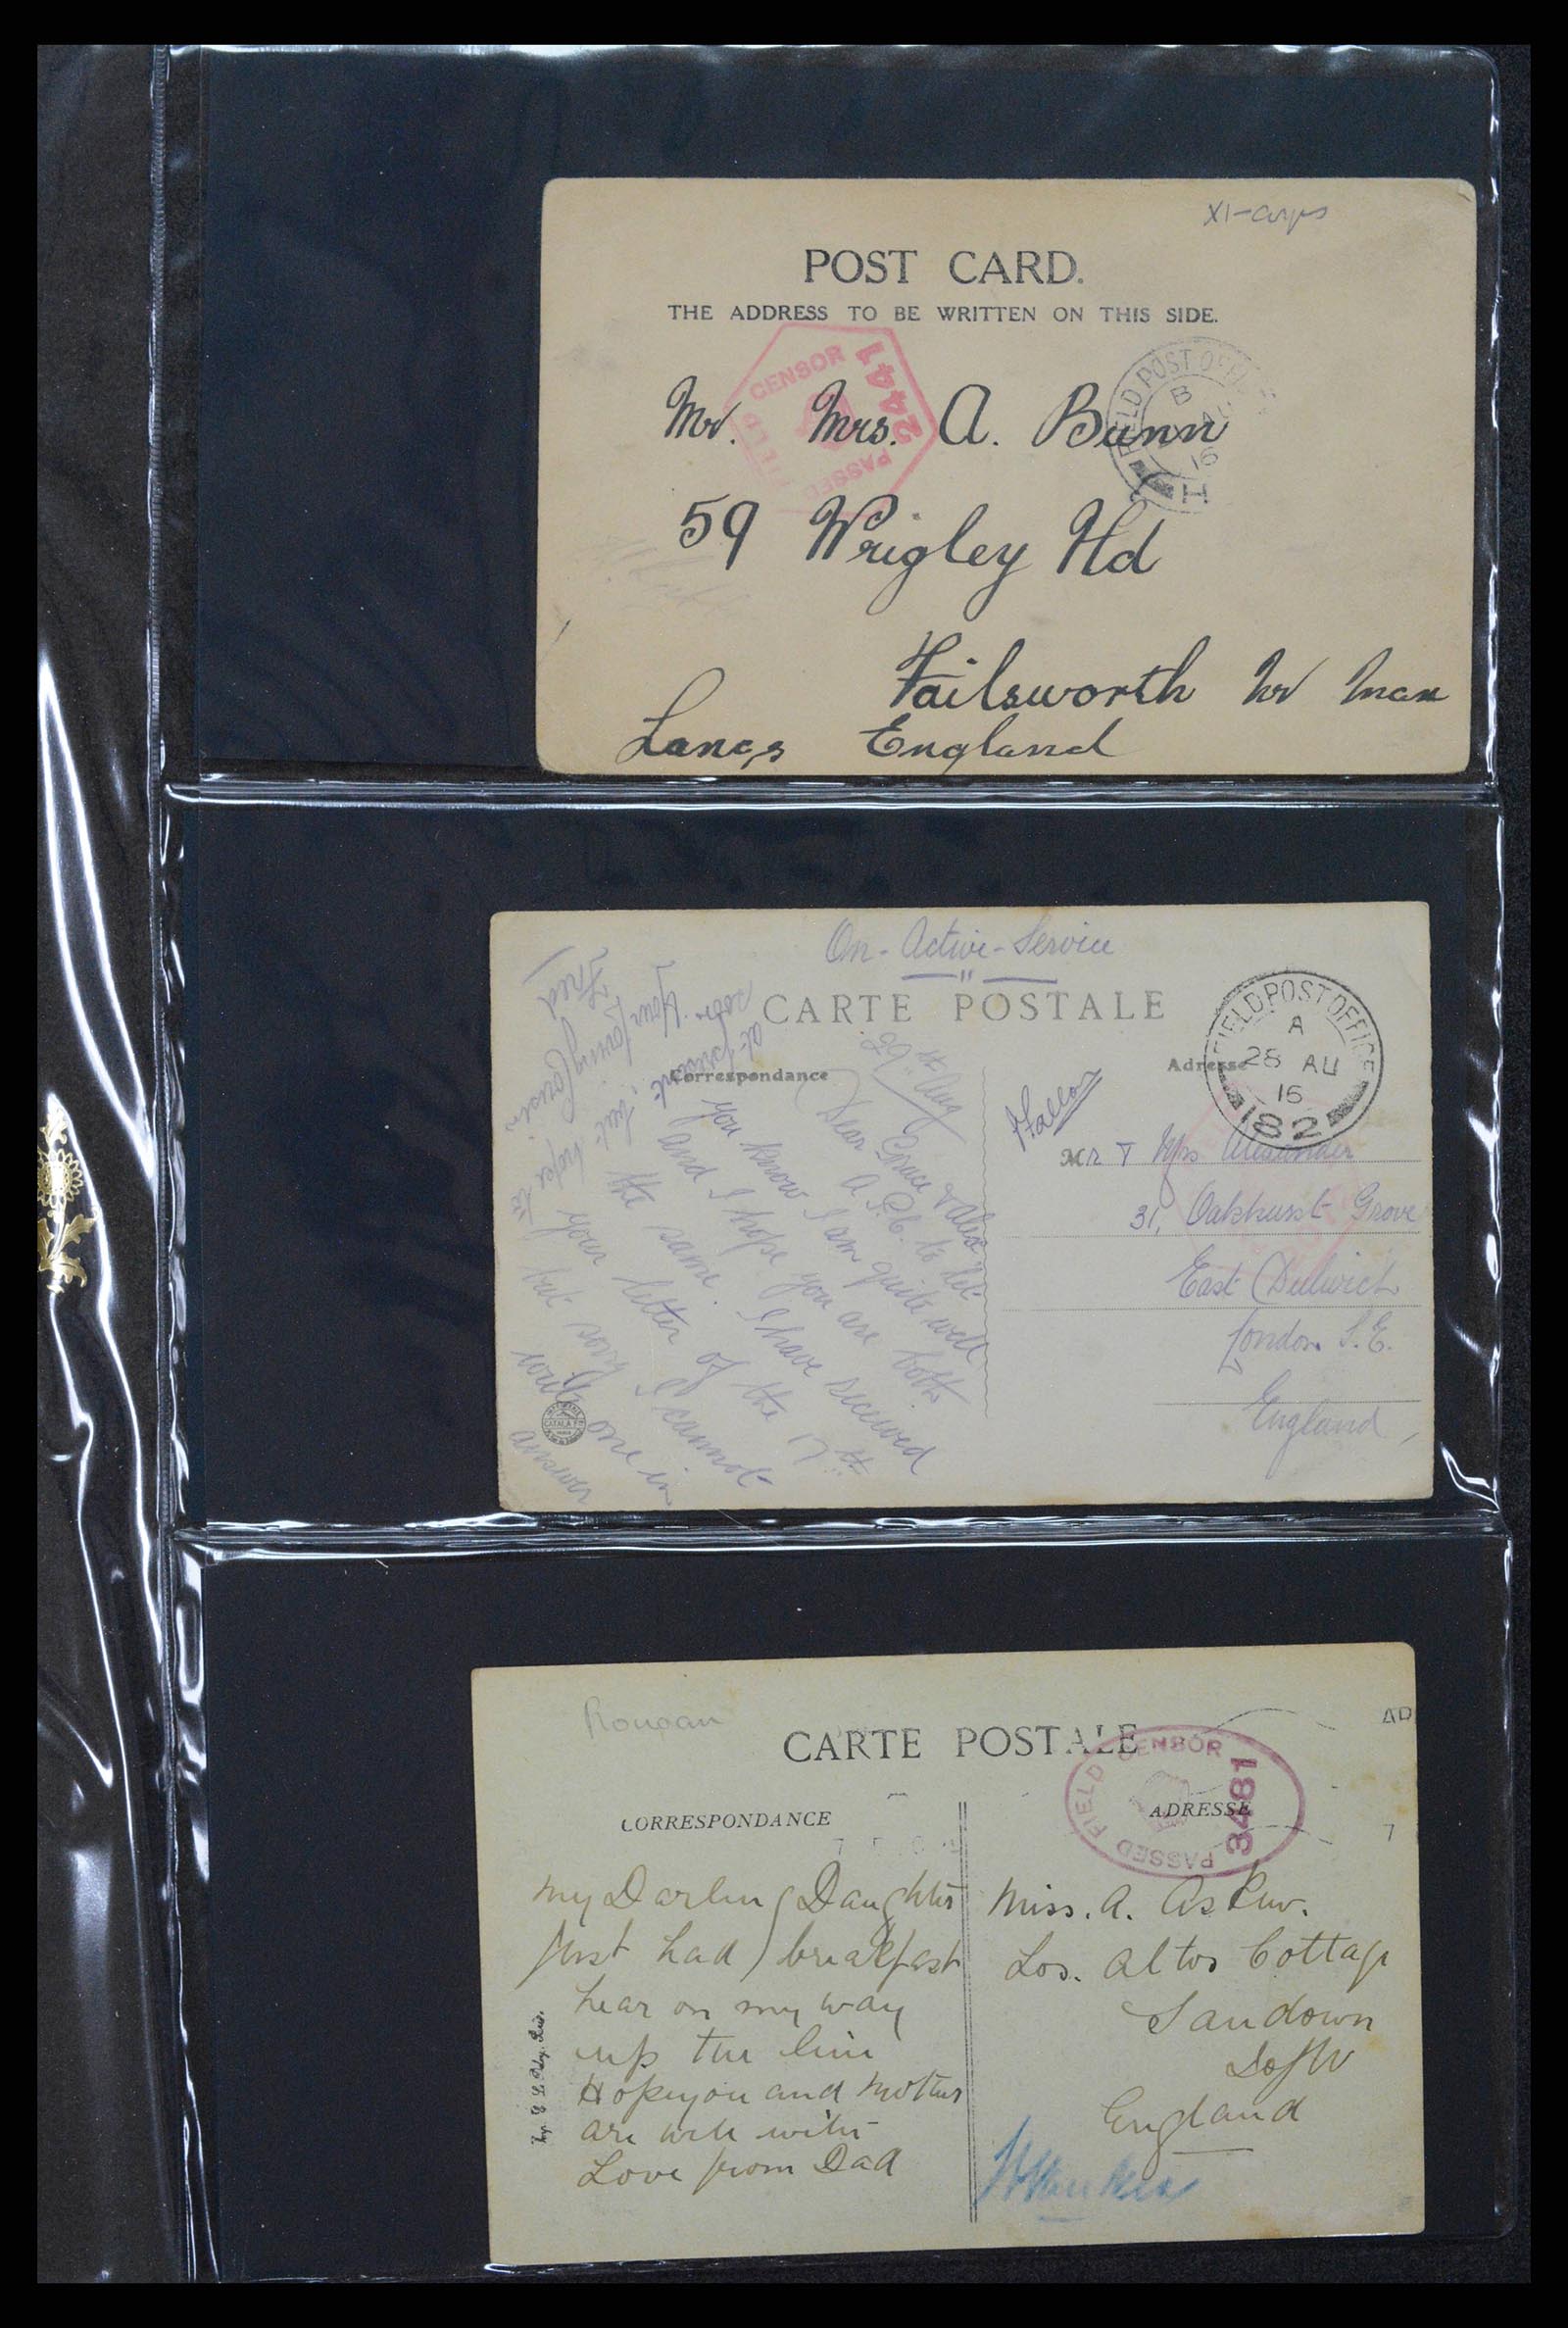 XI-Corps
POST CARD.
THE ADDRESS TO BE WRITTEN ON THIS SIDE.
PASSED FIELD CENSOR
2441
FIELD POST OFFICE
B
AU
16
H
Mr. Mrs. A. Bunn
59 Wrigley Hd
Failsworth Nr Man
Lancs England
On-Active-Service
CARTE POSTALE
Correspondance
Adresse
FIELD POST OFFICE
A
28 AU
16
182
29th Aug
Dear Grace & Alex
A P.C. to let
you know I am quite well
and I hope you are both
the same. I have received
your letter of the 17th
but sorry I cannot
write one in
answer
at present, but hope to
soon. Your loving Cousin
Fred
Mr & Mrs Alexander
31, Oakhurst Grove
East Dulwich
London S.E.
England,
Rouoan
CARTE POSTALE
CORRESPONDANCE
ADRESSE
PASSED FIELD CENSOR
3481
AD
7
My Darling Daughter
Just had breakfast
hear on my way
up the line
Hope you and Mother
are well with
Love from Dad
Miss. A. Askew.
Los. Altos Cottage
Sandown
I of W
England